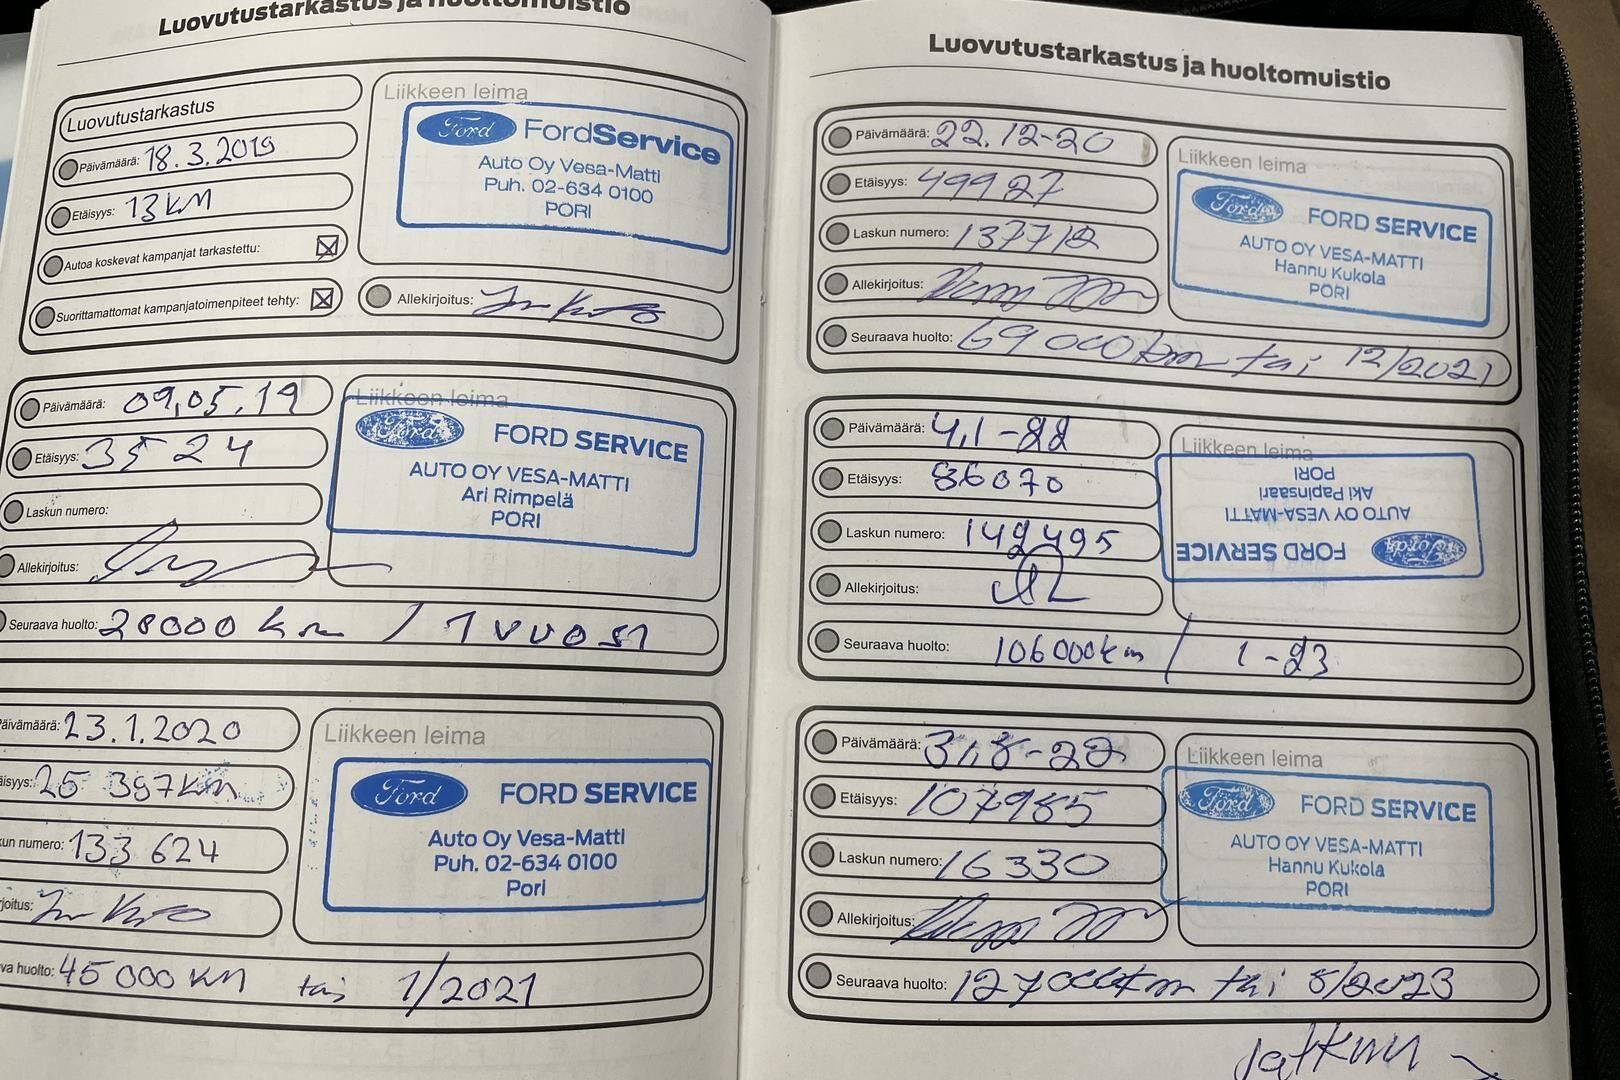 Luovutustarkastus ja huoltomuistio
Luovutustarkastus
Päivämäärä: 18.3.2019
Etäisyys: 13 KM
Autoa koskevat kampanjat tarkastettu:
Suorittamattomat kampanjatoimenpiteet tehty:
Liikkeen leima
Ford FordService
Auto Oy Vesa-Matti
Puh. 02-634 0100
PORI
Allekirjoitus:
Päivämäärä: 09.05.19
Etäisyys: 3524
Laskun numero:
Allekirjoitus:
Liikkeen leima
Ford FORD SERVICE
AUTO OY VESA-MATTI
Ari Rimpelä
PORI
Seuraava huolto: 20000 km / 1 vuosi
äivämäärä: 23.1.2020
äisyys: 25 397 KM
kun numero: 133 624
rjoitus:
Liikkeen leima
Ford FORD SERVICE
Auto Oy Vesa-Matti
Puh. 02-634 0100
Pori
va huolto: 45 000 KM tai 1/2021
Luovutustarkastus ja huoltomuistio
Päivämäärä: 22.12-20
Etäisyys: 49927
Laskun numero:
Allekirjoitus:
Liikkeen leima
Ford FORD SERVICE
AUTO OY VESA-MATTI
Hannu Kukola
PORI
Seuraava huolto: 69 000 km tai 12/2021
Päivämäärä: 4.1-22
Etäisyys: 86070
Laskun numero: 149495
Allekirjoitus:
Liikkeen leima
Ford FORD SERVICE
AUTO OY VESA-MATTI
Aki Papinsaari
PORI
Seuraava huolto: 106 000 km / 1-23
Päivämäärä: 31.8-22
Etäisyys: 107985
Laskun numero: 16330
Allekirjoitus:
Liikkeen leima
Ford FORD SERVICE
AUTO OY VESA-MATTI
Hannu Kukola
PORI
Seuraava huolto: 127000 km tai 8/2023
Jatkuu